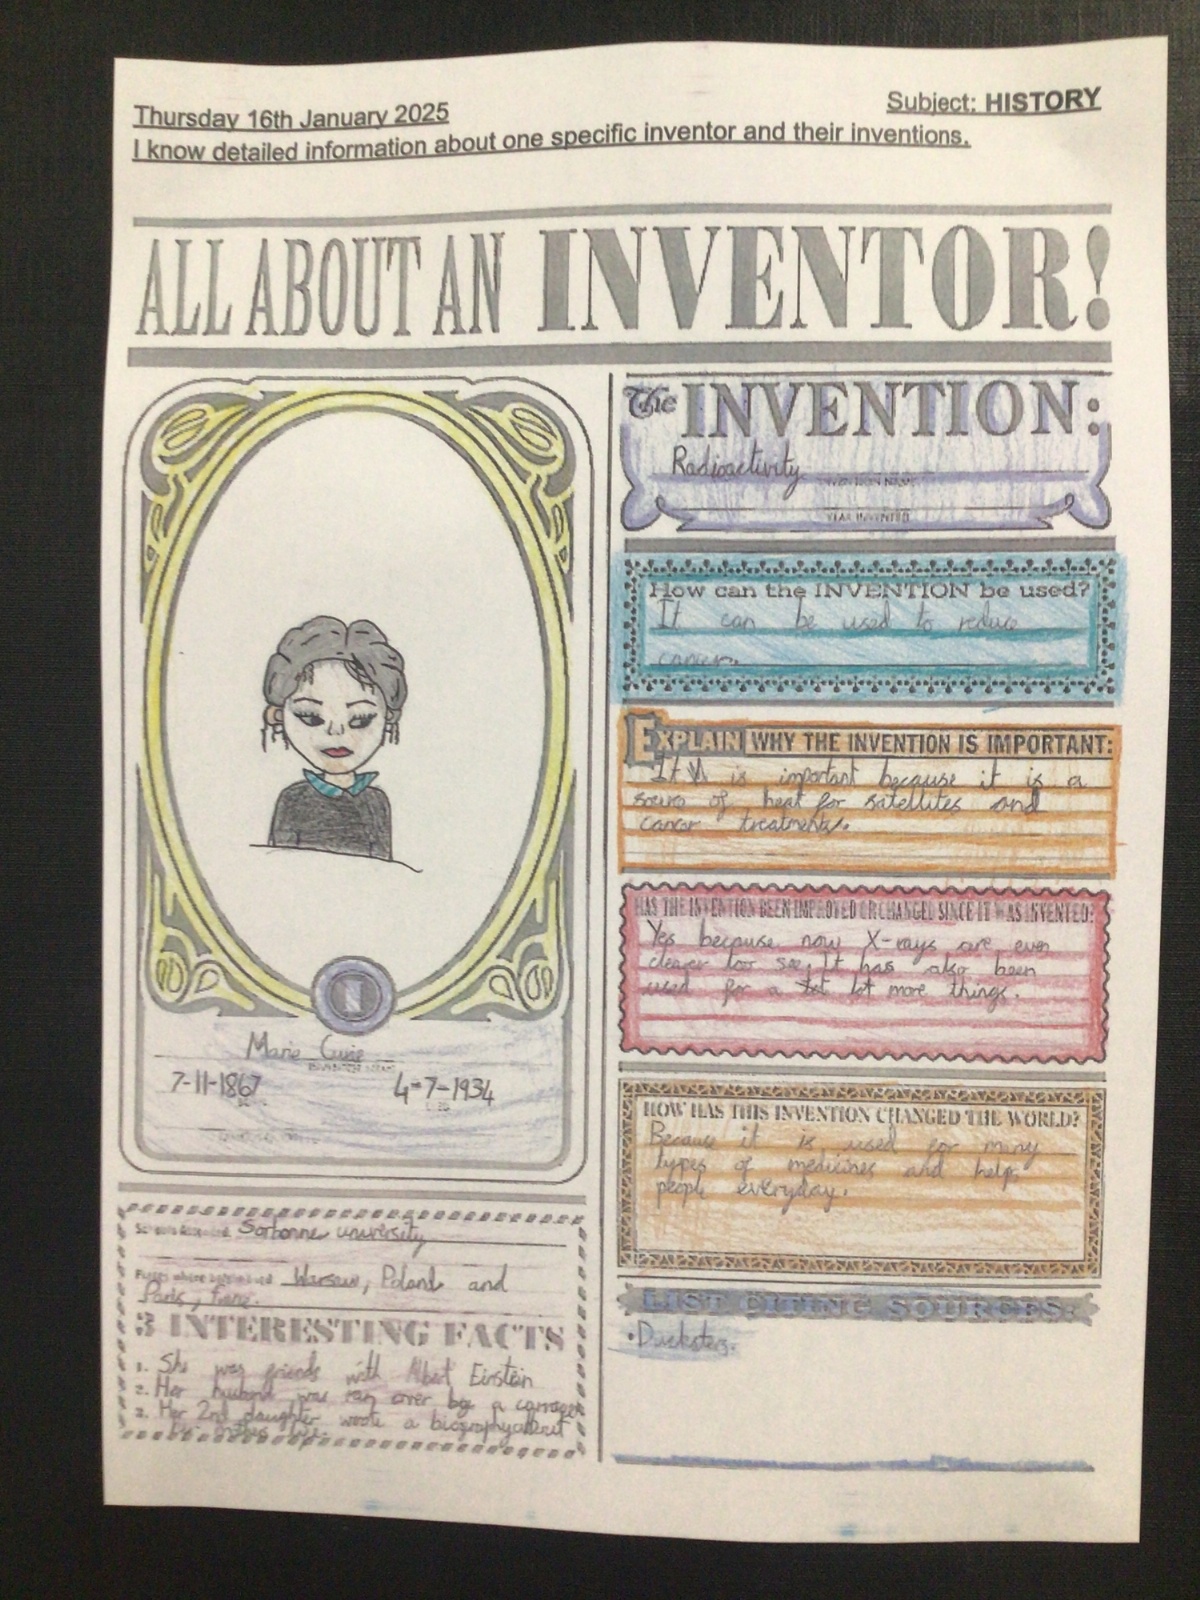 Thursday 16th January 2025
Subject: HISTORY
I know detailed information about one specific inventor and their inventions.
ALL ABOUT AN INVENTOR!
Marie Curie
INVENTOR NAME
7-11-1867
4-7-1934
BORN
DIED
Schools Attended: Sorbonne university
Places where they lived: Warsaw, Poland and
Paris,
3 INTERESTING FACTS
1. She was friends with Albert Einstein
2. Her husband was ran over by a carriage
3. Her 2nd daughter wrote a biography about
The INVENTION:
Radioactivity
INVENTION NAME
YEAR INVENTED
How can the INVENTION be used?
It can be used to reduce
cancer.
EXPLAIN WHY THE INVENTION IS IMPORTANT:
It is important because it is a
source of heat for satellites and
cancer treatments.
HAS THE INVENTION BEEN IMPROVED OR CHANGED SINCE IT WAS INVENTED:
Yes because now X-rays are even
clearer too see. It has also been
used for a lot more things.
HOW HAS THIS INVENTION CHANGED THE WORLD?
Because it is used for many
types of medicines and help
people everyday.
LIST CITING SOURCES:
•Ducksters.